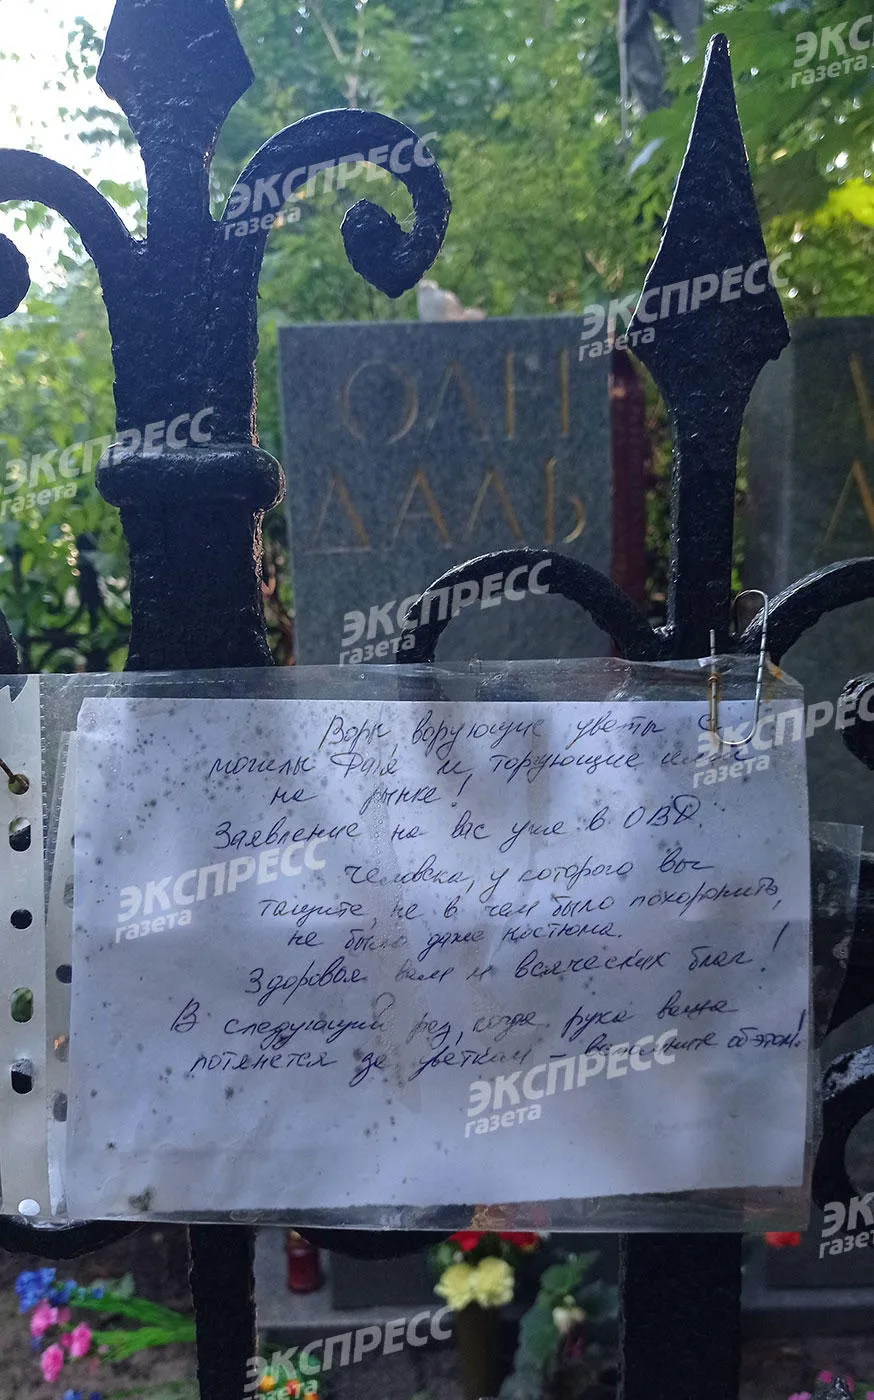 ЭКСПРЕСС
газета
ЭКСПРЕСС
газета
ЭКСПРЕСС
газета
ОЛЕГ
ДАЛЬ
ЭКСПРЕСС
газета
ЭКСПРЕСС
газета
Воры, ворующие цветы с
могилы Даля и торгующие ими
на рынке!
Заявление на вас уже в ОВД.
Человека, у которого вы
тащите, не в чем было похоронить,
не было даже костюма.
Здоровья вам и всяческих благ!
В следующий раз, когда рука ваша
потянется за цветком – вспомните об этом!
ЭКСПРЕСС
газета
ЭКСПРЕСС
газета
ЭКСПРЕСС
газета
ЭКСПРЕСС
газета
ЭКСПРЕСС
газета